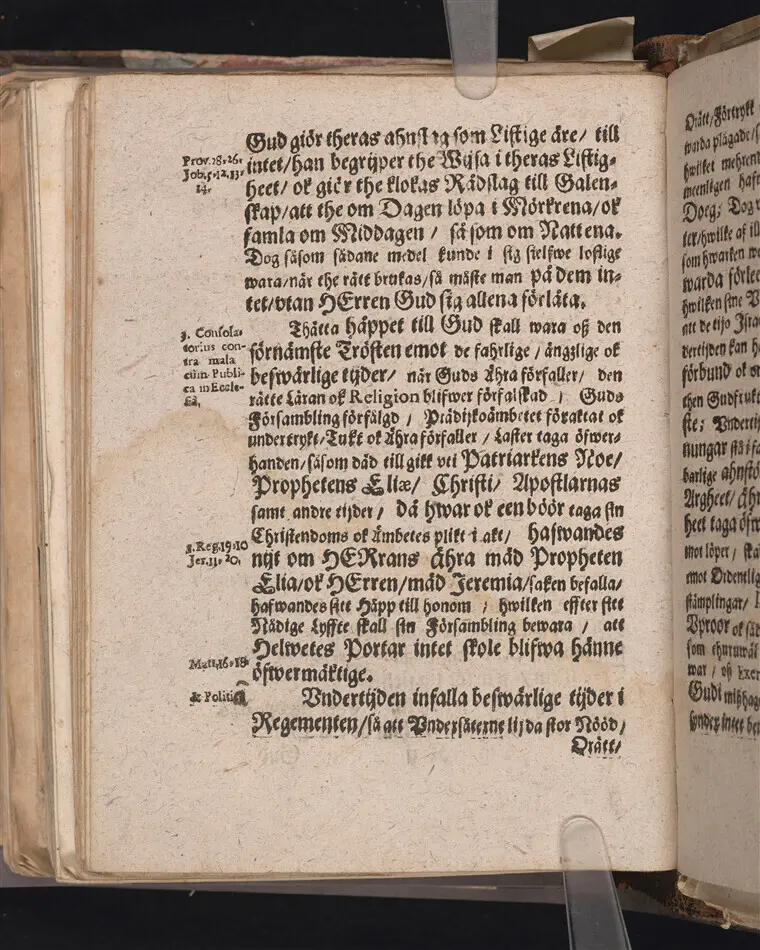 Gud giör theras ahnslag som Listige äre/ till
Prov. 28. 26.
Job. 5. 12. 13.
14.
intet/han begrijper the Wijsa i theras Listig-
heet/ ok giör the klokas Rådslag till Galen-
skap/att the om Dagen löpa i Mörkrena/ok
famla om Middagen / så som om Nattena.
Dog såsom sådane medel kunde i sig sielfwe loflige
wara/när the rätt brukas/så måste man på dem in-
tet/vtan HErren Gud sig allena förläta.
3. Consola-
torius con-
tra mala
cùm Publi-
ca in Eccle-
sia,
Thätta häppet till Gud skall wara oß den
förnämste Trösten emot de fahrlige / ängzlige ok
beswärlige tijder/ när Guds Ähra förfaller/ den
rätte Läran ok Religion blifwer förfalskad / Guds
Försambling förfälgd / Prädijkoämbetet föraktat ok
undertrykt/Tukt ok Ähra förfaller / Laster taga öfwer-
handen/såsom däd till gikk vti Patriarkens Noe/
Prophetens Eliæ/ Christi/ Apostlarnas
samt andre tijder/ då hwar ok een böör taga sin
Christendoms ok Ämbetes plikt i akt/ hafwandes
1. Reg. 19. 10
Jer. 11. 20.
nijt om HERrans Ähra mäd Propheten
Elia/ok HErren/mäd Jeremia/saken befalla/
hafwandes sitt Häpp till honom / hwilken effter sitt
Nådige Lyffte skall sin Försambling bewara / att
Helwetes Portar intet skole blifwa hänne
Matt. 16. 18.
öfwermäktige.
& Politiâ
Vndertijden infalla beswärlige tijder i
Regementen/så att Vndersåterne lijda stor Nööd/
Orätt/
Orätt/Förtrykt
warda plågade/
hwilket mehrend
meenligen haf
Doeg; Dog
ler/hwilke af ill
som hwarken
warda förlee
hwilken sine
att de tijo Isra
dertijden kan h
förbund ok
then Gudfrukt
ste; Vnderti
nungar stå i fa
barlige ahnstö
Argheet/ ähr
heet taga öfw
mot löper/ ska
emot Ordentlig
stämplingar/
Vproor ok så
som churuwäl
war / oß Exe
Gudi mißhag
synder intet be